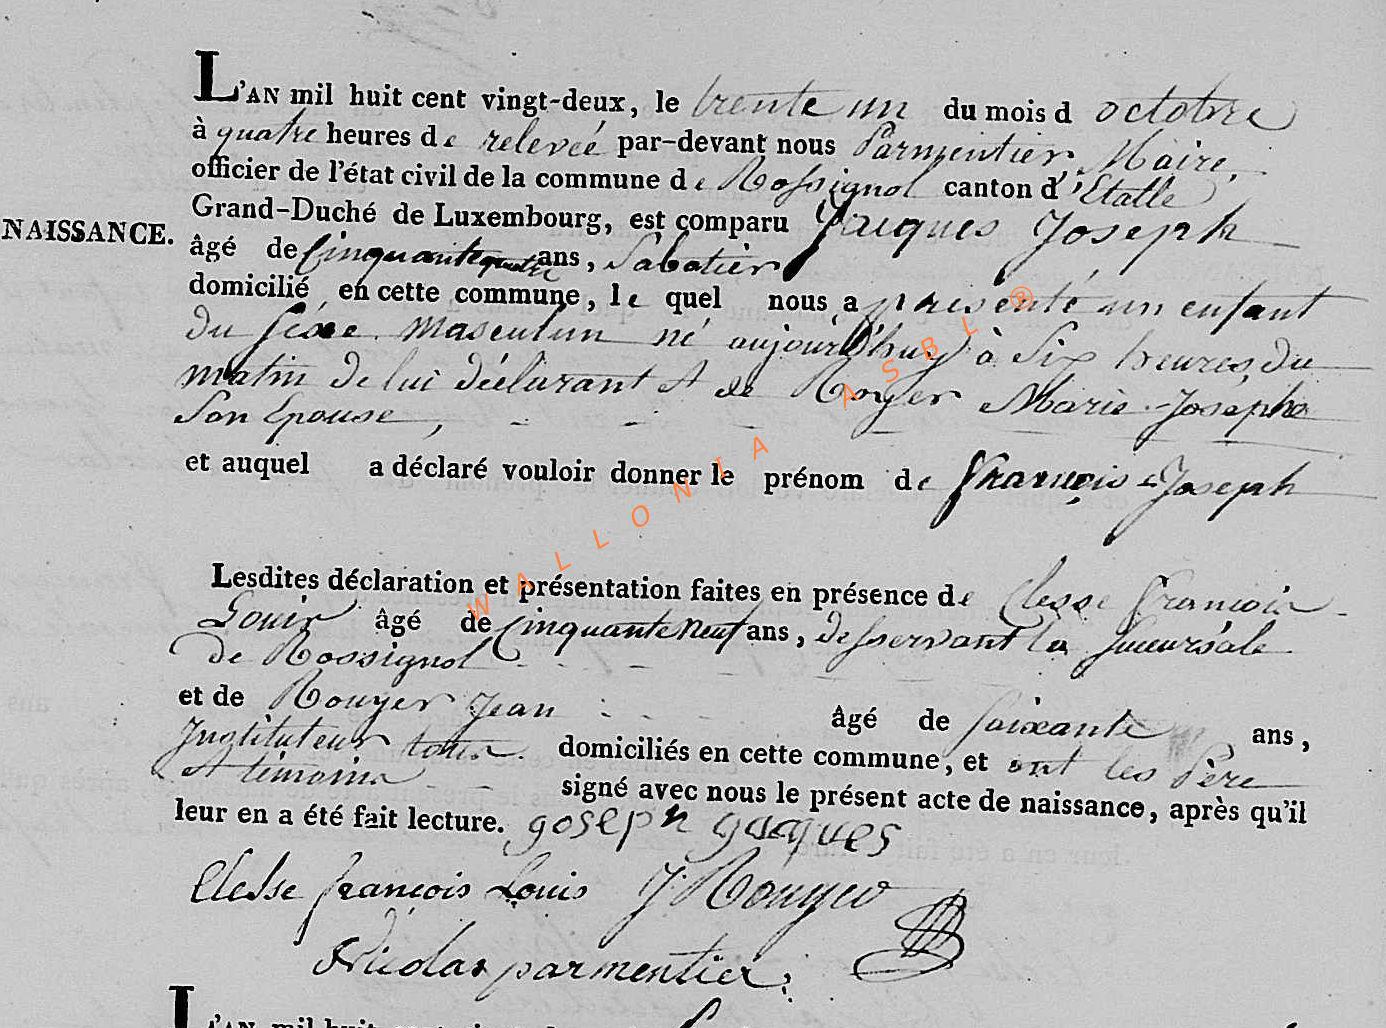 L'AN mil huit cent vingt-deux, le trente un du mois d octobre
à quatre heures de relevée par-devant nous Parmentier, Maire,
officier de l'état civil de la commune de Rossignol canton d'Etalle
Grand-Duché de Luxembourg, est comparu Jacques Joseph
NAISSANCE.
âgé de Cinquante quatre ans, Sabotier
domicilié en cette commune, le quel nous a présenté un enfant
du sexe masculin né aujourd'huy à Six heures du
matin de lui déclarant et de Royer Marie-Josephe
Son Epouse,
et auquel a déclaré vouloir donner le prénom de François-Joseph
Lesdites déclaration et présentation faites en présence de Clesse François
Louis âgé de Cinquante Neuf ans, desservant la succursale
de Rossignol
et de Rouyer Jean âgé de soixante ans,
Instituteur tous domiciliés en cette commune, et ont les Père
et témoins signé avec nous le présent acte de naissance, après qu'il
leur en a été fait lecture. Joseph Jacques
Clesse françois Louis J Rouyer
Nicolas parmentier
L'AN mil huit
WALLONIA ASBL ®